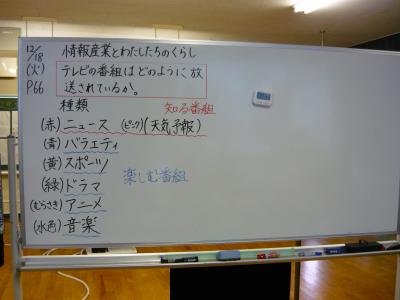 12/18 情報産業とわたしたちのくらし
(火) テレビの番組はどのように放
P66 送されているか。
種類 知る番組
(赤) ニュース (ピンク)(天気予報)
(青) バラエティ
(黄) スポーツ
(緑) ドラマ 楽しむ番組
(むらさき) アニメ
(水色) 音楽